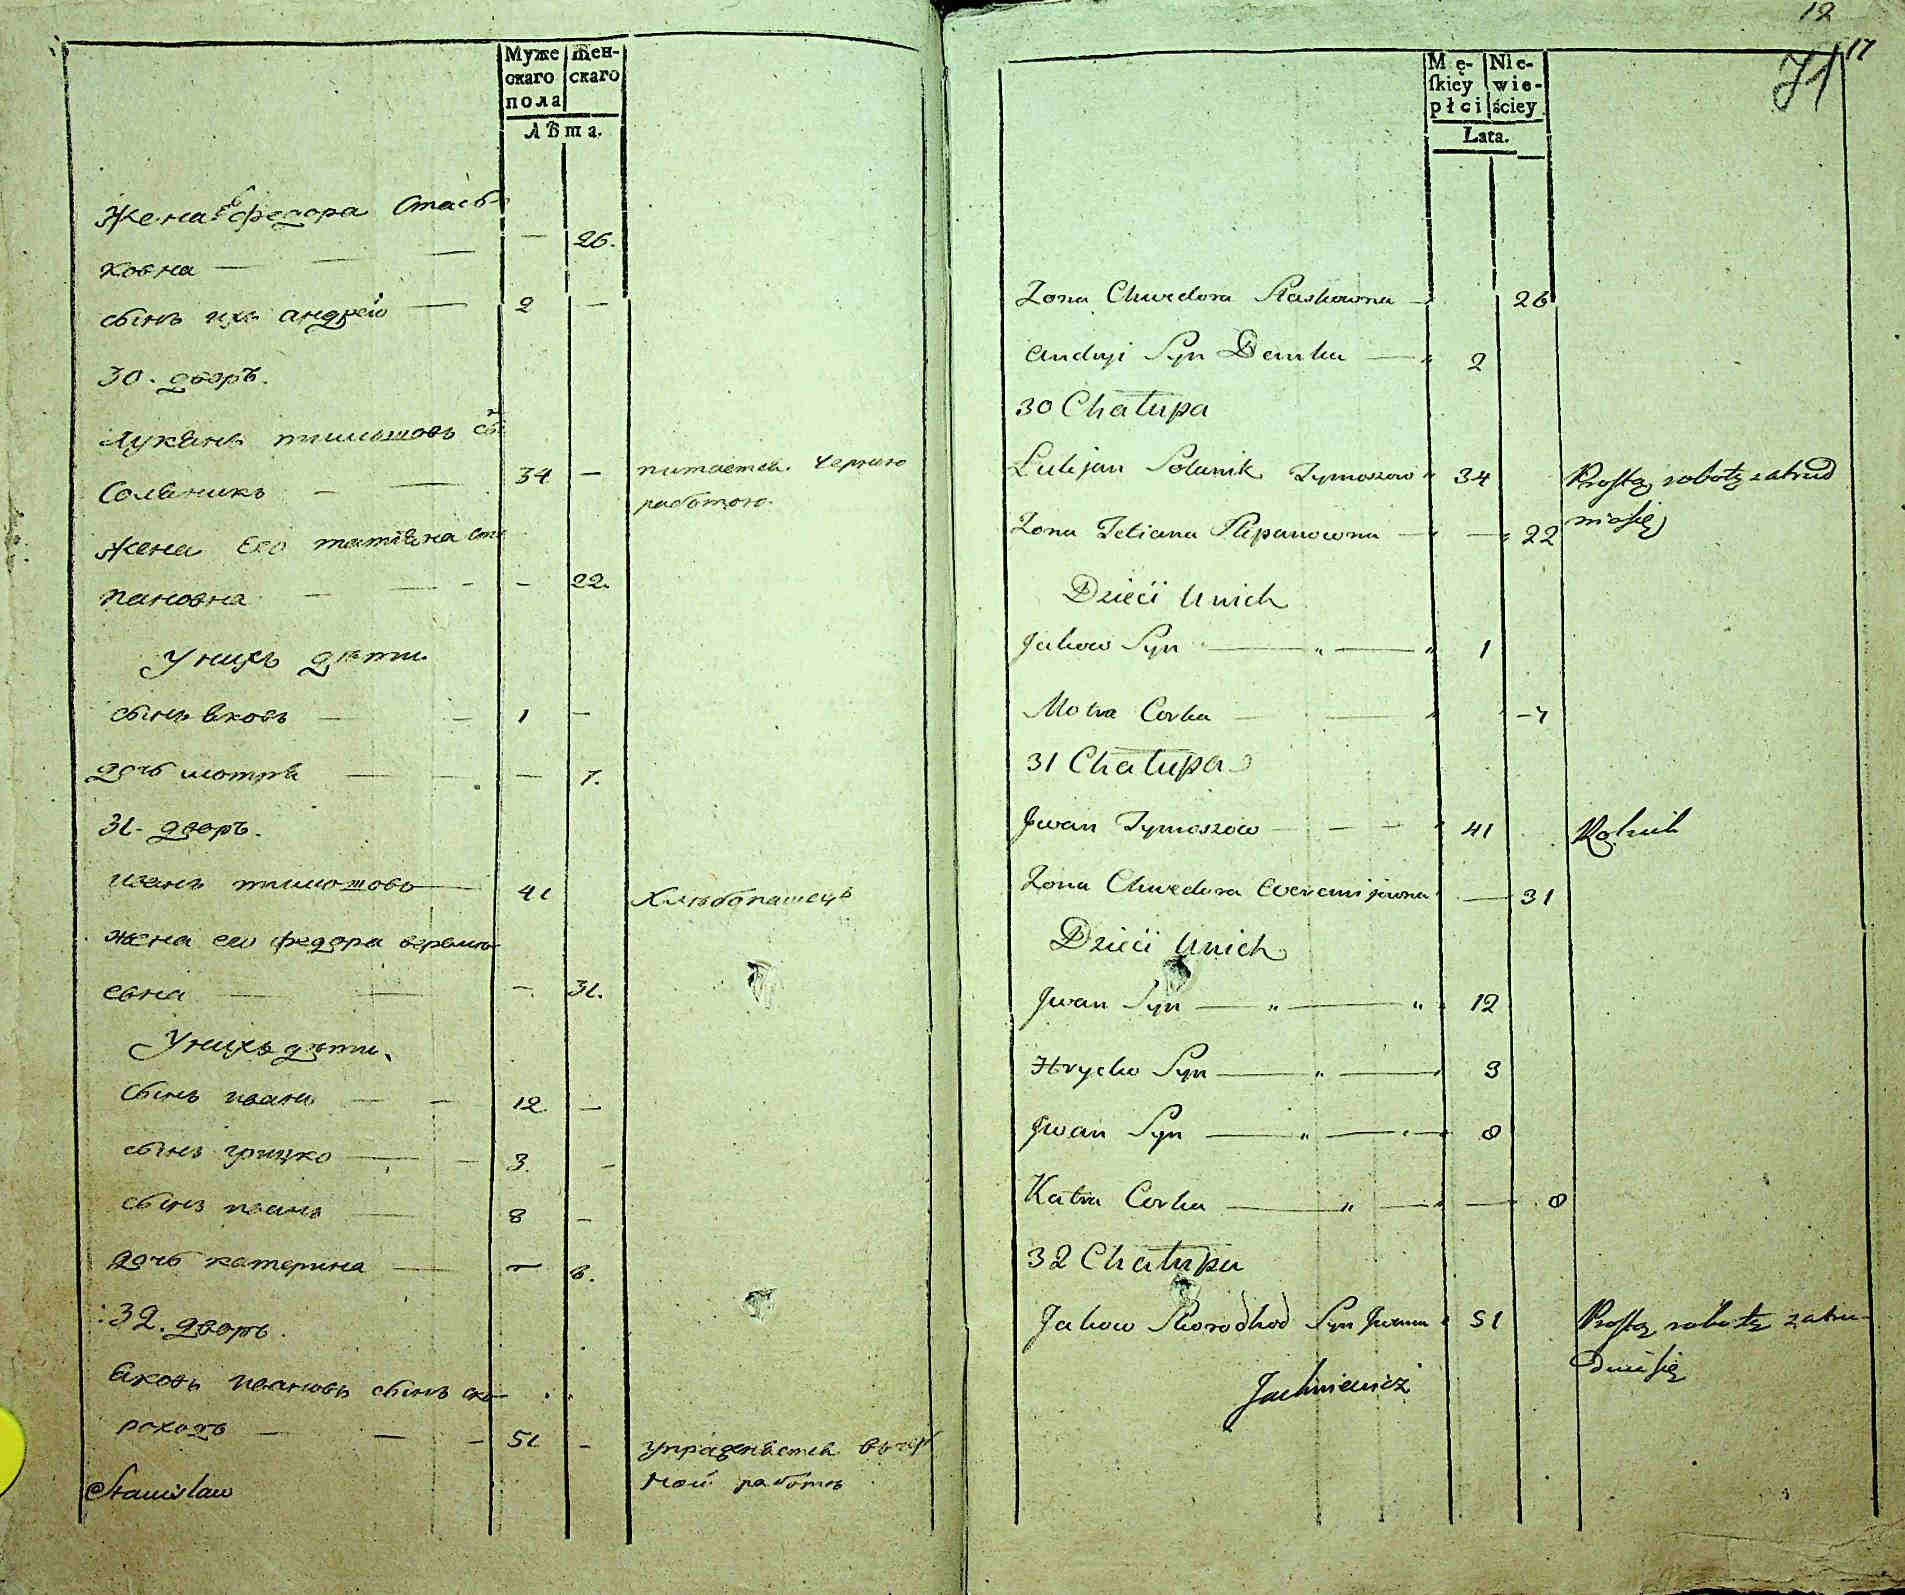 Муже Жен-
скаго скаго
пола
Лѣта.
Жена Федора Стась-
ковна — 26.
сынъ ихъ андрей — 2 —
30. дворъ.
Лукянъ тимошовъ сы
Соляникъ — 34 — питается черною
работою.
жена его татіяна сте
пановна — 22.
У нихъ дѣти
сынъ яковъ — 1 —
дочь мотря — 7.
31. дворъ.
иванъ тимошовъ — 41 хлѣбопашецъ
жена его федора веремѣ
евна — 31.
У нихъ дѣти.
сынъ иванъ — 12 —
сынъ грицко — 3. —
сынъ иванъ — 8 —
дочь катерина — 8.
32. дворъ.
яковъ ивановъ сынъ ско-
роходъ — 51 — упражняется въ чер
ной работѣ
Stanisław
12
17
71
Mę- Nie-
ſkiey wie-
płci ściey
Lata.
Zona Chwedora Staskowna — 26
Andryi Syn Demka — 2
30 Chałupa
Lukjan Solanik Tymoszow 34 Prostą robotą zatrud
Zona Tetiana Stepanowna — 22 nia się
Dzieci u nich
Jakow Syn — 1
Motra Corka — 7
31 Chałupa
Jwan Tymoszow — 41 Rolnik
Zona Chwedora Weremijewna — 31
Dzieci u nich
Jwan Syn — 12
Hrycko Syn — 3
Jwan Syn — 8
Katra Corka — 8
32 Chałupa
Jakow Skorodhod Syn Jwana 51 Prostą robotą zatru-
dni się
Jachniewicz